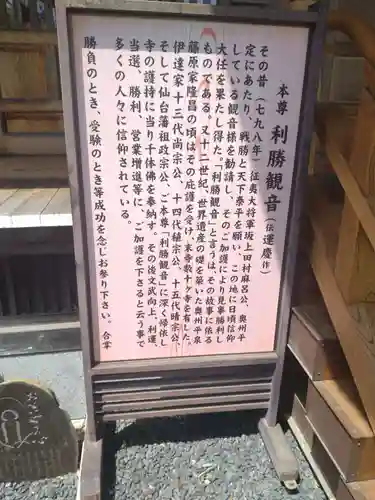 本尊 利勝観音(伝運慶作)
その昔(七九八年)征夷大将軍坂上田村麻呂公、奥州平
定にあたり、戦勝と天下泰平を願い、この地に日頃信仰
している観音様を勧請し、そのご加護により見事勝利し
大任を果たし得た。「利勝観音」と言うは、その故事に依る
ものである。又十二世紀、世界遺産の礎を築いた奥州平泉
藤原家隆昌の頃はその庇護を受け、末寺数十ケ寺を有した。
伊達家十三代尚宗公、十四代稙宗公、十五代晴宗公
そして仙台藩祖政宗公、ご本尊「利勝観音」に深く帰依し
寺の護持に当り千体佛を奉納す。その後文武向上、利運、
当選、勝利、営業増進等に、ご加護を下さると云う事で
多くの人々に信仰されている。
勝負のとき、受験のとき等成功を念じお参り下さい。合掌